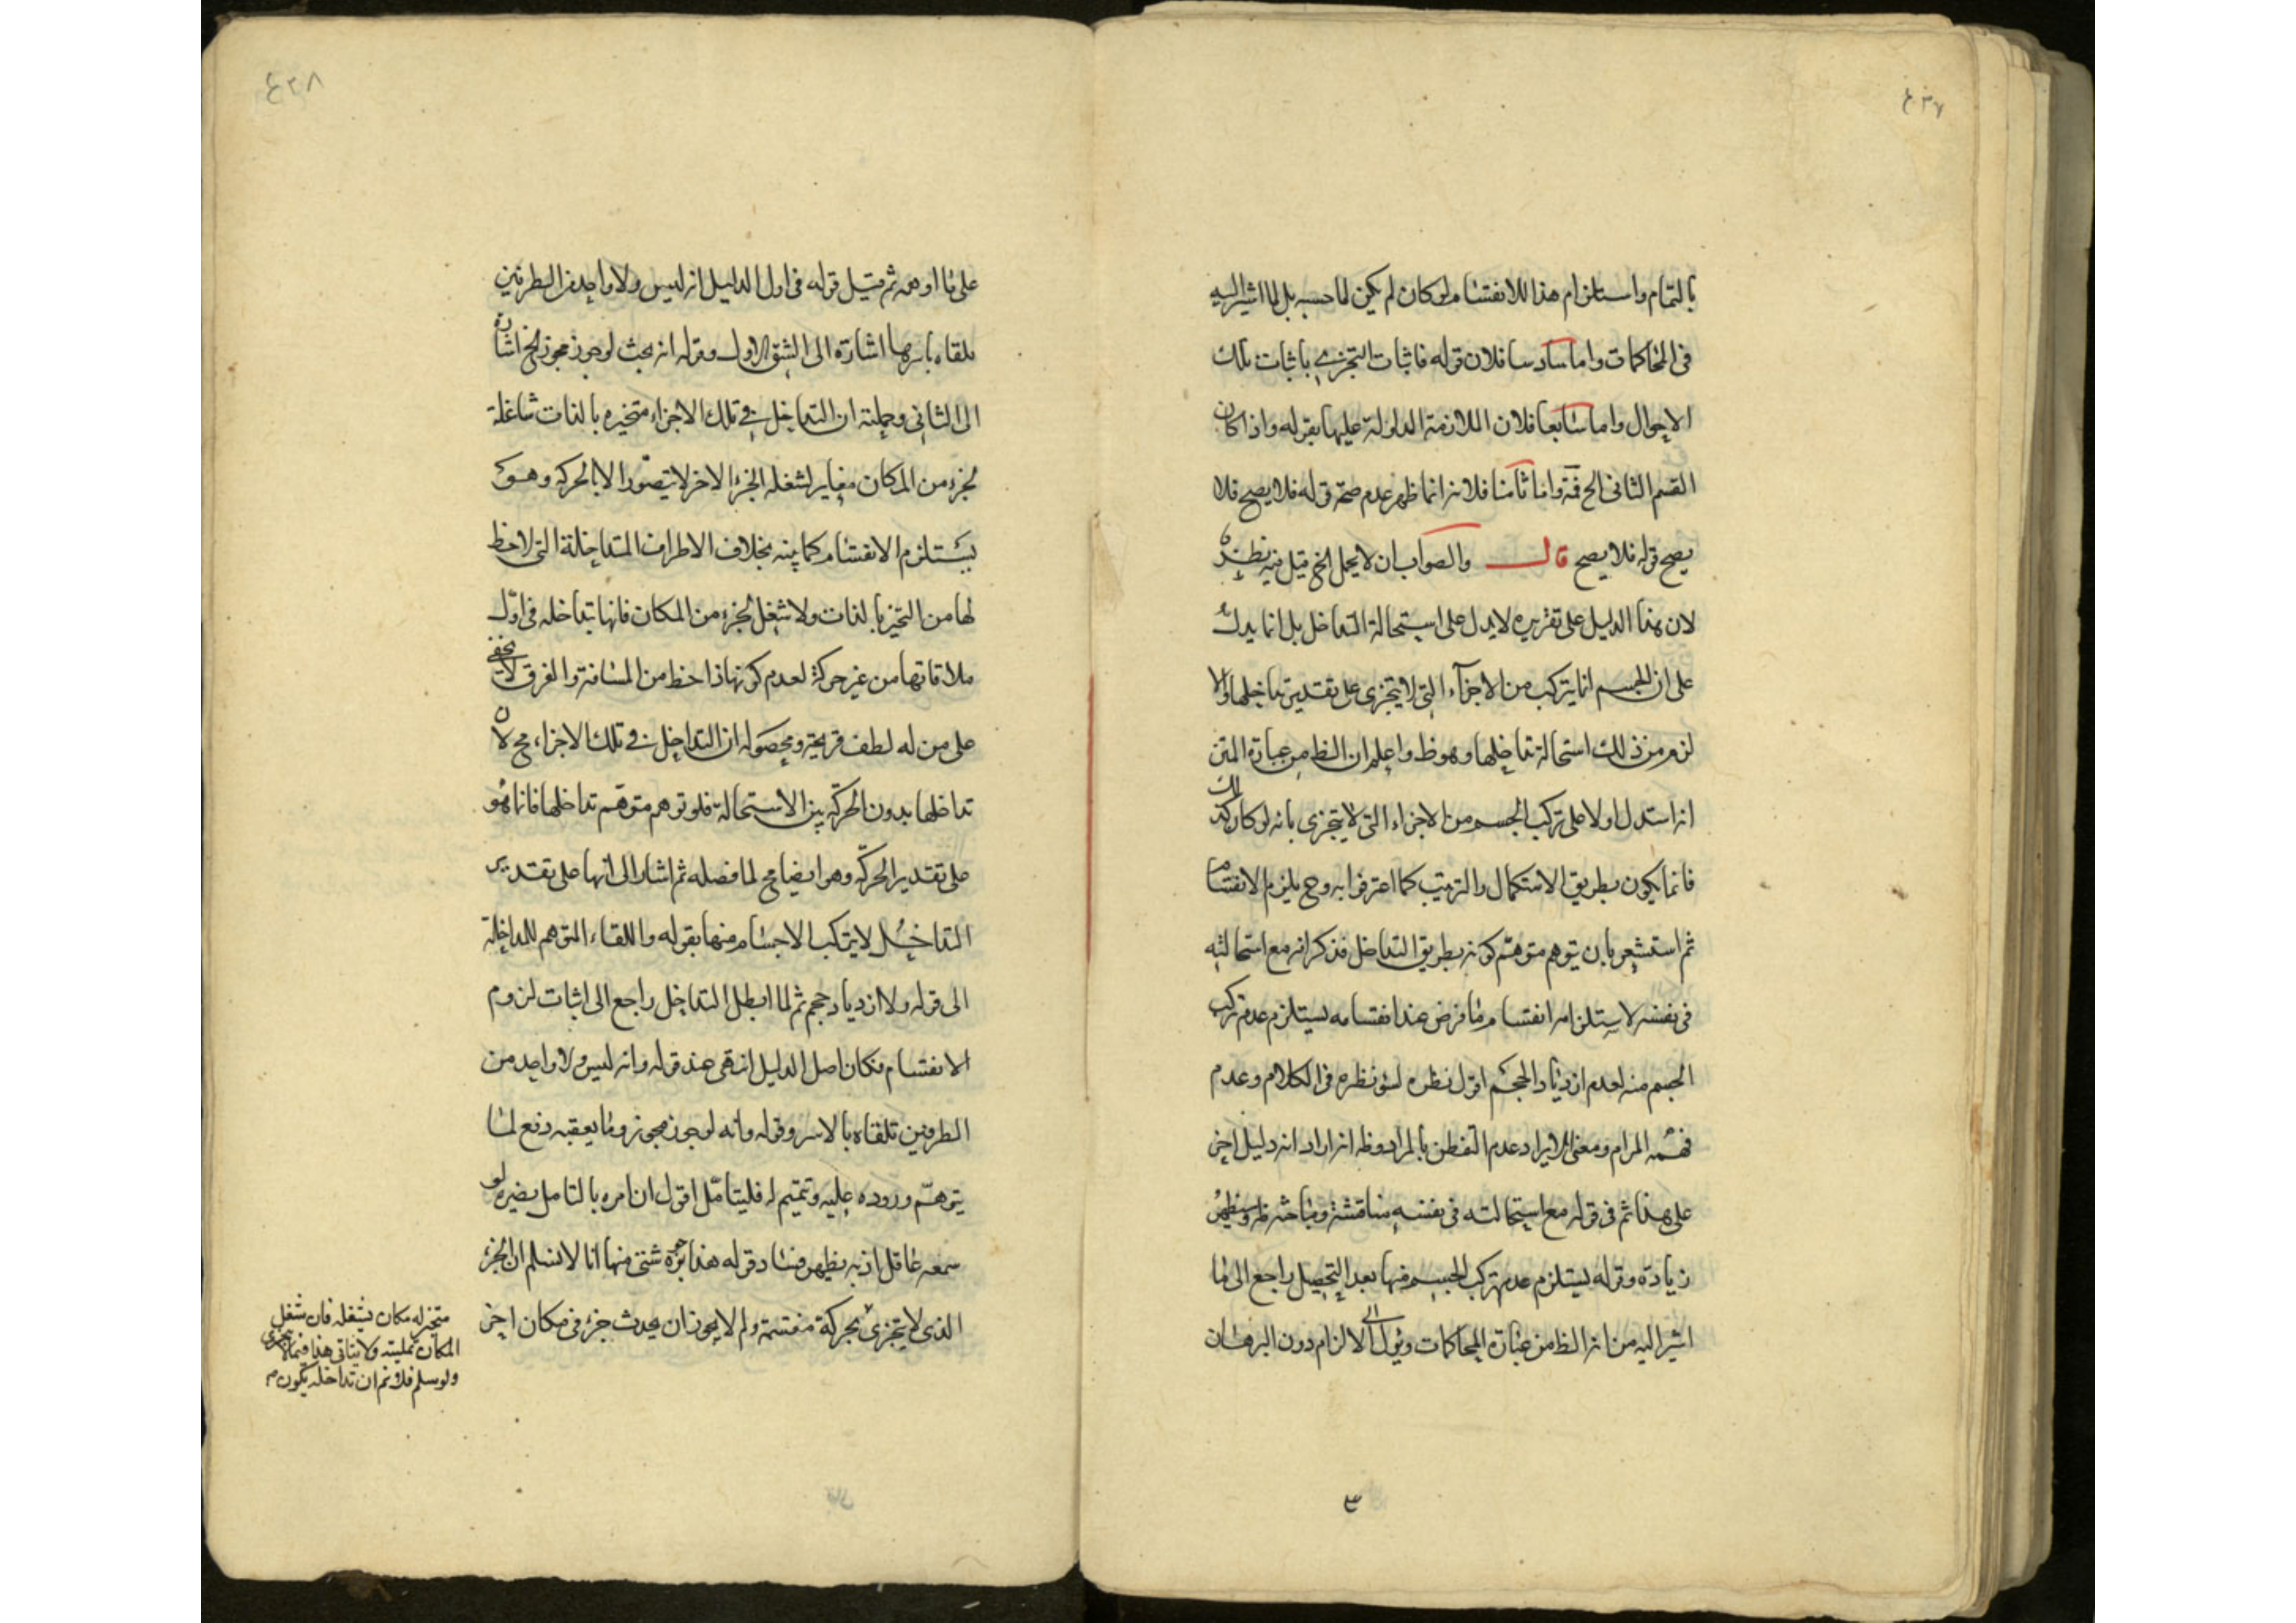 ٤٣٧
بالتمام واستلزام هذا للانقسام لو كان لم يكن لما حسبه بل لما اشير اليه
فى المحاكمات واما سادسا فلان قوله فاثبات التجزى باثبات تلك
الاحوال واما سابعا فلان الملازمة المدلولة عليها بقوله واذا كان
القسم الثانى الخ واما ثامنا فلانه انما ظهر عدم صحة قوله فلا يصح فلا
يصح قوله فلا يصح قال والصواب ان لا يحمل الخ قيل فيه نظر
لان هذا الدليل على تقريره لا يدل على استحالة التداخل بل انما يدل
على ان الجسم انما يتركب من الاجزآء التى لا يتجزى على تقدير تداخلها ولا
لزم من ذلك استحالة تداخلها وهو ظ واعلم ان الظ من عبارة المتن
انه استدل اولا على تركب الجسم من الاجزاء التى لا يتجزى بانه لو كان كذلك
فانما يكون بطريق الاستكمال والترتيب كما اعترفوا به وح يلزم الانقسام
ثم استشعر بان يتوهم متوهم كونه بطريق التداخل فذكر انه مع استحالته
فى نفسه لاستلزامه انقسام ما فرض عدم انقسامه يستلزم عدم تركب
الجسم منه لعدم ازدياد الحجم اقول نظره لسؤ نظره فى الكلام وعدم
فهمه المرام ومعنى الايراد عدم التفطن بالمراد وظه انه اراد انه دليل اخر
على هذا ثم فى قوله مع استحالته فى نفسه مناقشة ومباحثة له وسيظهر
زيادة وقوله يستلزم عدم تركب الجسم منها بعد التحصيل راجع الى ما
اشير اليه من انه الظ من عبارة المحاكمات ويؤل الى الالزام دون البرهان
٣
٤٣٨
على ما اوهمه ثم قيل قوله فى اول الدليل انه ليس ولا واحد من الطرفين
يلقاه باسرها اشارة الى الشق الاول وقوله انه بحث لو جوز مجوز الخ اشارة
الى الثانى وجملته ان التداخل فى تلك الاجزاء متحيزه بالذات شاغلة
لجزء من المكان مغاير لشغله الجزء الاخر لا يتصور الا بالحركة وهو
يستلزم الانقسام كما بينه بخلاف الاطراف المتداخلة التى لا حظ
لها من التحيز بالذات ولا شغل لجزء من المكان فانها تتداخله فى اول
ملاقاتها من غير حركة لعدم كونها ذا حظ من المسافة والفرق لا يخفى
على من له لطف قريحة ومحصوله ان التداخل فى تلك الاجزاء مح لان
تداخلها بدون الحركة بين الاستحالة فلو توهم متوهم تداخلها فانما هو
على تقدير الحركة وهو ايضا مح لما فصله ثم اشار الى انها على تقدير
التداخل لا يتركب الاجسام منها بقوله واللقاء المتوهم للمداخلة
الى قوله ولا ازدياد حجم ثم لما ابطل التداخل راجع الى اثبات لزوم
الانقسام فكان اصل الدليل انتهى عند قوله وانه ليس ولا واحد من
الطرفين تلقاه بالاسر وقوله وانه لو جوز مجوز وما يعقبه دفع لما
يتوهم وروده عليه وتتميم له فليتامل اقول ان امره بالتامل يضره لو
سمعه عاقل اذ به يظهر فساد قوله هذا بوجوه شتى منها انا لا نسلم ان الجزء
الذى لا يتجزى بحركة منقسمة ولم لا يجوز ان يحدث جزء فى مكان اخر
متحيز له مكان يشغله فان شغل
المكان تمليته ولا ينافى هذا فيما لا يتجزى
ولو سلم فلا نم ان تداخله يكون م